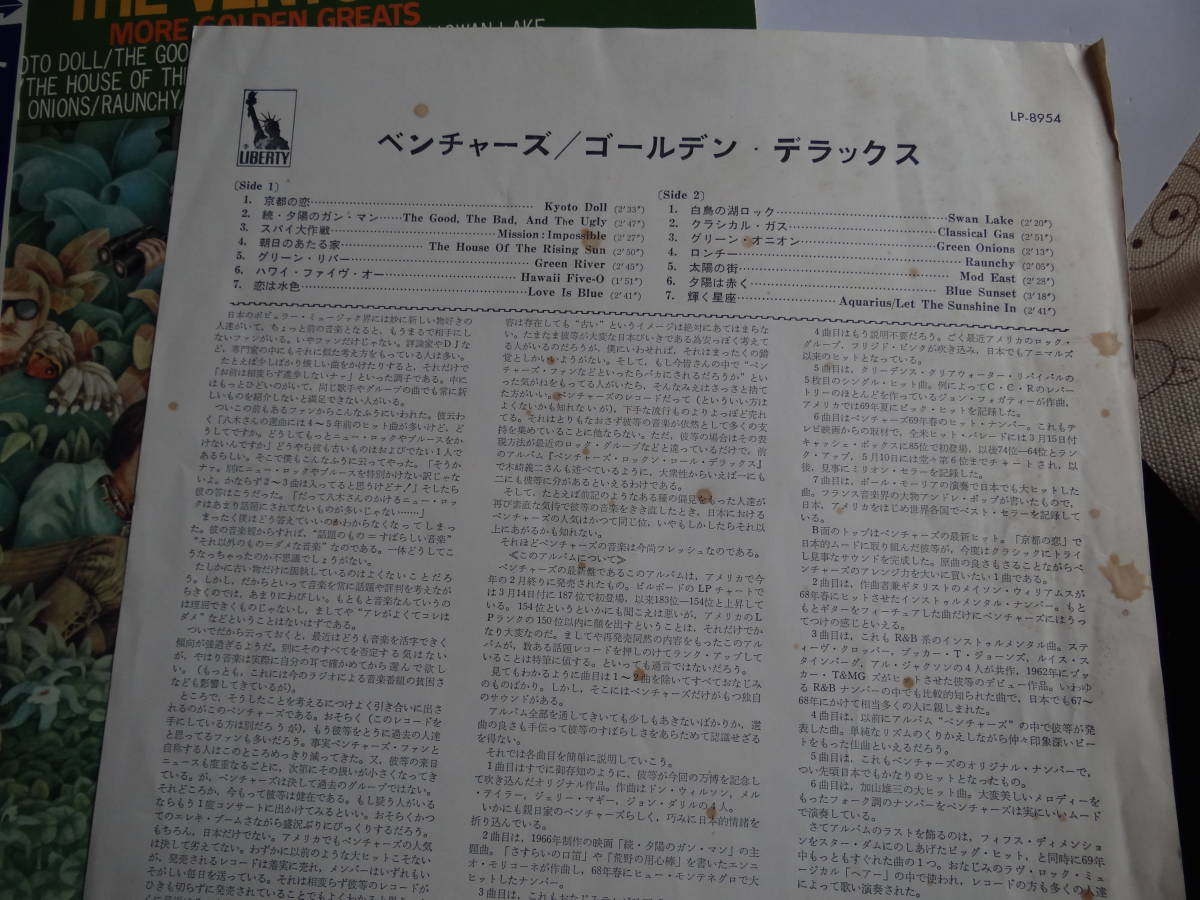 MORE GOLDEN GREATS
OTO DOLL/THE GOO
/THE HOUSE OF TH
ONIONS/RAUNCHY/
LIBERTY
LP-8954
ベンチャーズ/ゴールデン・デラックス
〔Side 1〕
1. 京都の恋……Kyoto Doll (2'33")
2. 続・夕陽のガン・マン……The Good, The Bad, And The Ugly (2'47")
3. スパイ大作戦……Mission: Impossible (2'27")
4. 朝日のあたる家……The House Of The Rising Sun (2'50")
5. グリーン・リバー……Green River (2'45")
6. ハワイ・ファイヴ・オー……Hawaii Five-O (1'51")
7. 恋は水色……Love Is Blue (2'41")
〔Side 2〕
1. 白鳥の湖ロック……Swan Lake (2'20")
2. クラシカル・ガス……Classical Gas (2'51")
3. グリーン・オニオン……Green Onions (2'13")
4. ロンチー……Raunchy (2'05")
5. 太陽の街……Mod East (2'28")
6. 夕陽は赤く……Blue Sunset (3'18")
7. 輝く星座……Aquarius/Let The Sunshine In (2'41")
日本のポピュラー・ミュージック界には妙に新しい物好きの
人達がいて、ちょっと前の音楽となると、もうまるで相手にし
ないファンがいる。いやファンだけじゃない。評論家やDJな
ど、専門家の中にもそれに似た考え方をもっている人は多い。
たとえば少しばかり懐しい曲をかけたりすると、それだけで
「お前は相変らず進歩しないナァ」といった調子である。中に
はもっとひどいのがいて、同じ歌手やグループの曲でも常に新
しいものを紹介しないと満足できない人がいる。
ついこの前もあるファンからこんなふうにいわれた。彼云わ
く「八木さんの選曲には4〜5年前のヒット曲が多いけど、ど
うしてですか。どうしてもっとニュー・ロックやブルースをか
けないんですか」どうやら彼も古いものはおよびでない1人で
あるらしい。そこで僕もこんなふうに云ってやった。「そうか
ナァ。別にニュー・ロックやブルースを特別かけない訳じゃな
いよ。かならず2〜3曲は入ってると思うけどナ」そしたら
彼の答はこうだった。「だって八木さんのかけるニュー・ロッ
クはあまり話題にされてないものが多いじゃない……」
まったく僕はどう答えていいのかわからなくなってしまっ
た。彼の音楽観からすれば、“話題のもの＝すばらしい音楽”
“それ以外のもの＝ダメな音楽”なのである。一体どうしてこ
うなっちゃったのか不思議でしょうがない。
たしかに古い物だけに固執しているのはよくないことだろ
う。しかし、だからといって音楽を常に話題や評判を考えなが
らきくのでは、あまりにわびしい。もともと音楽なんていうの
は理屈できくものじゃないし、ましてや“アレがよくてコレは
ダメ”などということはないはずである。
ついでだから云っておくと、最近はどうも音楽を活字できく
傾向が強過ぎるようだ。別にそのすべてを否定する気はない
が、やはり音楽は実際に自分の耳で確かめてから選んで欲し
い。（もっとも、これには今のラジオによる音楽番組の貧困さ
なども影響してきているが）。
ところで、そうしたことを考えるにつけよく引き合いに出さ
れるのがこのベンチャーズである。おそらく（このレコードを
手にしている方は別だろうが）、もう彼等をとうに過去の人達
と思ってるファンも多いだろう。事実ベンチャーズ・ファンと
自称する人はこのところめっきり減ってきた。又、彼等の来日
ニュースも度重なるごとに、次第にその扱いが小さくなってき
ている。が、ベンチャーズは決して過去のグループではない。
それどころか、今もって彼等は健在である。もし疑う人がいる
ならもう1度コンサートに出かけてみるといい。おそらくかつ
てのエレキ・ブームさながら盛況ぶりにびっくりするだろう。
もちろん、日本だけでない。アメリカでもベンチャーズの人気
は決して劣えてない。わずかに以前のような大ヒットこそない
が、発売されるレコードは着実に売れ、メンバーはいずれもい
そがしい毎日を送っている。それは相変らず彼等のレコードが
容は存在しても“古い”というイメージは絶対にあてはまらな
い。たまたま彼等が大変な日本びいきである為安っぽく考えて
る人がいるのだろうが、僕にいわせれば、それはまったくの錯
覚としかいいようがない。そして、もし今皆さんの中で“ベン
チャーズ・ファンなどといったらバカにされるだろうか”とい
った気がねをもってる人がいたら、そんなみえはさっさと捨て
た方がいい。ベンチャーズのレコードだって（といういい方は
よくないかも知れないが）、下手な流行ものよりよっぽど売れ
てる。それはとりもなおさず彼等の音楽が依然として多くの支
持を集めていることに他ならない。ただ、彼等の場合はその表
現方法が最近のロック・グループなどと違っているだけで、前
のアルバム『ベンチャーズ・ロックン・ロール・デラックス』
で木崎義二さんも述べているように、大衆性からいえば一にも
二にも彼等に分があるといえるわけである。
そして、たとえば前記のようなある種の偏見をもった人達が
再び素直な気持で彼等の音楽をきき直したとき、日本における
ベンチャーズの人気はかつて同じ位、いやもしかしたらそれ以
上にあがるかも知れない。
それほどベンチャーズの音楽は今尚フレッシュなのである。
≪このアルバムについて≫
ベンチャーズの最新盤であるこのアルバムは、アメリカで今
年の2月終りに発売されたもの。ビルボードのLPチャートで
は3月14日付に187位で初登場、以来183位—154位と上昇して
いる。154位というといかにも聞こえは悪いが、アメリカのL
Pランクの150位以内に顔を出すということは、それだけでか
なり大変なのだ。ましてや再発売同然の内容をもったこのアル
バムが、数ある話題レコードを押しのけてランク・アップして
いることは特筆に値する。といっても過言ではないだろう。
見てもわかるように曲目は1〜2曲を除いてすべておなじみ
のものばかり。しかし、そこにはベンチャーズだけがもつ独自
のサウンドがある。
アルバム全部を通してきいても少しもあきないばかりか、選
曲の良さも手伝って彼等のすばらしさをあらためて認識せざる
を得ない。
それでは各曲目を簡単に説明していこう。
1曲目はすでに御存知のように、彼等が今回の万博を記念し
て吹き込んだオリジナル作品。作曲はドン・ウィルソン、メル
・テイラー、ジェリー・マギー、ジョン・ダリルの4人。
いかにも親日家のベンチャーズらしく、巧みに日本的情緒を
折り込んでいる。
2曲目は、1966年制作の映画「続・夕陽のガン・マン」の主
題曲。「さすらいの口笛」や「荒野の用心棒」を書いたエンニ
オ・モリコーネが作曲し、68年春にヒュー・モンテネグロで大
ヒットしたナンバー。
4曲目はもう説明不要だろう。ごく最近アメリカのロック・
グループ、フリジド・ピンクが吹き込み、日本でもアニマルズ
以来のヒットとなっている。
5曲目は、クリーデンス・クリアウォーター・リバイバルの
5枚目のシングル・ヒット曲。例によってC・C・Rのレパー
トリーのほとんどを作っているジョン・フォガティーが作曲、
アメリカでは69年夏にビック・ヒットを記録した。
6曲目はベンチャーズ69年春のヒット・ナンバー。これもテ
レビ映画からの取材で、全米ヒット・パレードには3月15日付
キャッシュ・ボックスに85位で初登場、以後74位—64位とラン
ク・アップ、5月10日には堂々第6位までチャートされ、以
後、見事にミリオン・セラーを記録した。
7曲目は、ポール・モーリアの演奏で日本でも大ヒットした
曲。フランス音楽界の大物アンドレ・ポップが書いたもので、
日本、アメリカをはじめ世界各国でベスト・セラーを記録して
いる。
B面のトップはベンチャーズの最新ヒット。「京都の恋」で
日本的ムードに取り組んだ彼等が、今度はクラシックにトライ
し見事なサウンドを完成した。原曲の良さもさることながらベ
ンチャーズのアレンジ力を大いに買いたい1曲である。
2曲目は、作曲者兼ギタリストのメイソン・ウィリアムスが
68年春にヒットさせたインストゥルメンタル・ナンバー。もと
もとギターをフィーチュアした曲だけにベンチャーズにはうっ
てつけの感じといえる。
3曲目は、これも R&B 系のインストゥルメンタル曲。ステ
ィーヴ・クロッパー、ブッカー・T・ジョーンズ、ルイス・ス
タインバーグ、アル・ジャクソンの4人が共作、1962年にブッ
カー・T&MG ズがヒットさせた彼等のデビュー作品。いわゆ
る R&B ナンバーの中でも比較的知られた曲で、日本でも67〜
68年にかけて相当多くの人に親しまれた。
4曲目は、以前にアルバム“ベンチャーズ”の中で彼等が発
表した曲。単純なリズムのくりかえしながら仲々印象深いビー
トをもった佳曲といえるだろう。
5曲目は、これもベンチャーズのオリジナル・ナンバーで、
つい先頃日本でもかなりのヒットとなったもの。
6曲目は、加山雄三の大ヒット曲。大変美しいメロディーを
もったフォーク調のナンバーをベンチャーズは実にいいムード
で演奏している。
さてアルバムのラストを飾るのは、フィフス・ディメンショ
ンをスター・ダムにのしあげたビッグ・ヒット、と同時に69年
中もっともすぐれた曲の1つ。おなじみのラヴ・ロック・ミュ
ージカル「ヘアー」の中で使われ、レコードの方も多くの人達
によって歌い演奏された。